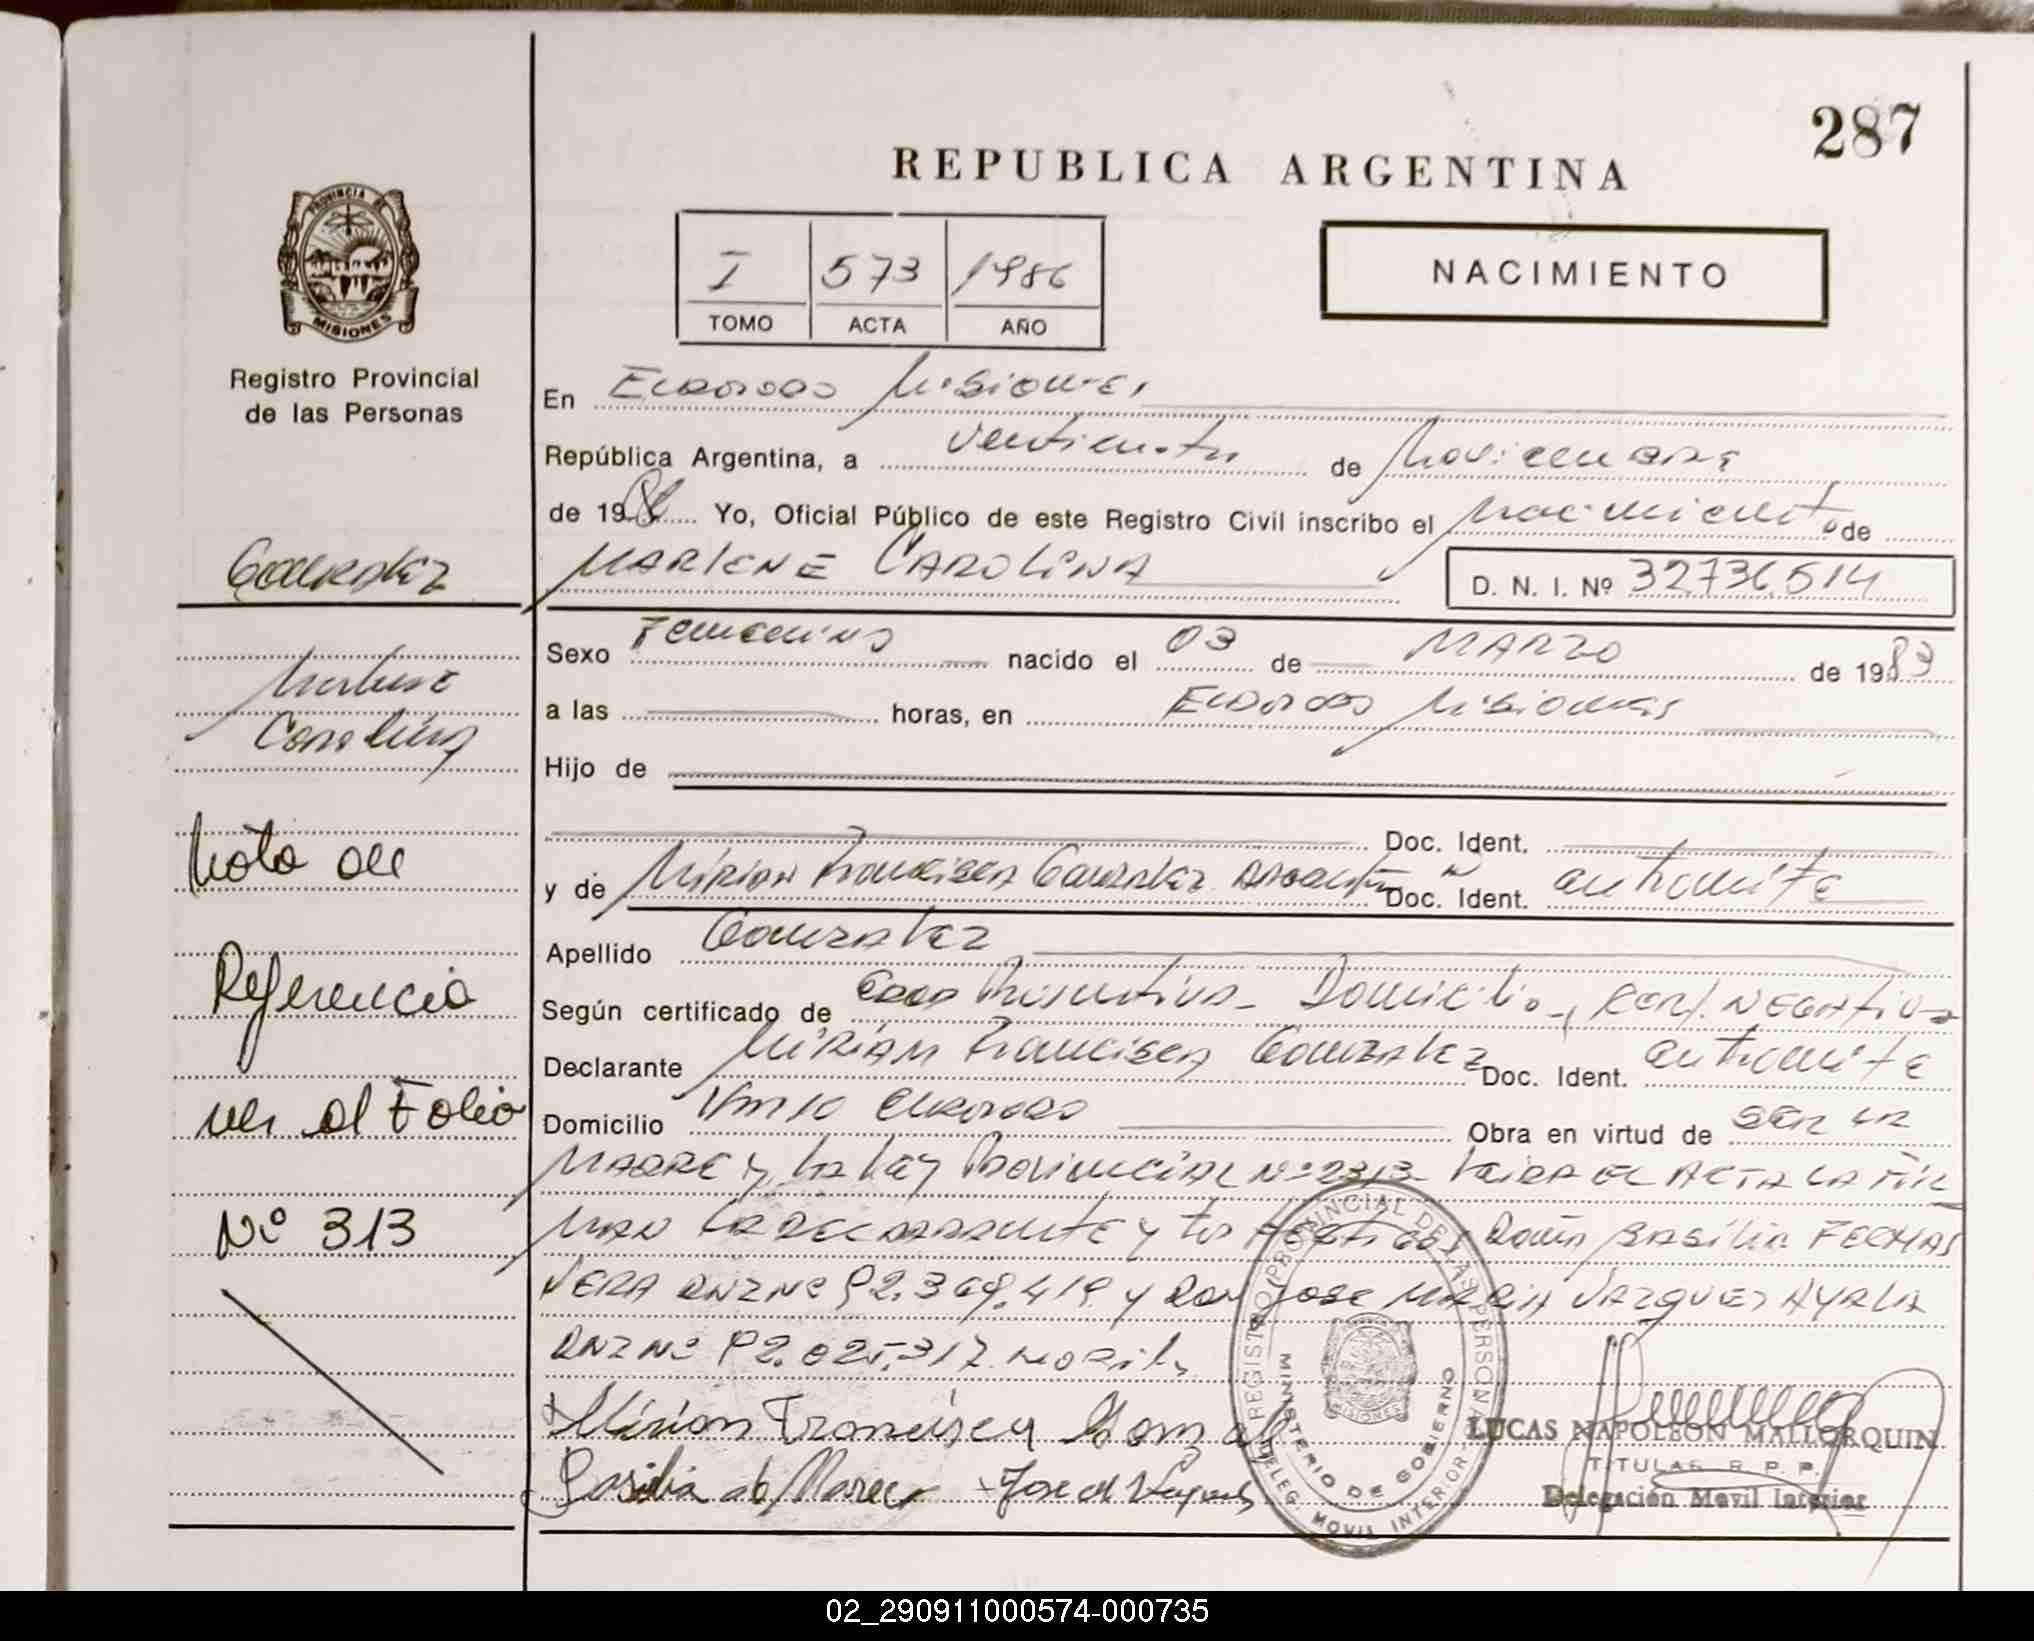 287
REPUBLICA ARGENTINA
PROVINCIA DE
MISIONES
I 573 1986
TOMO ACTA AÑO
NACIMIENTO
Registro Provincial
de las Personas
En Eldorado Misiones
República Argentina, a de Noviembre
de 1986 Yo, Oficial Público de este Registro Civil inscribo el Nacimiento de
Gonzalez
MARLENE CAROLINA
D. N. I. Nº 32736.514
Sexo Femenino nacido el 03 de MARZO de 1983
Marlene
a las horas, en Eldorado Misiones
Carolina
Hijo de
Doc. Ident.
Nota de
y de Mirian Francisca Gonzalez Doc. Ident. en tramite
Apellido Gonzalez
Referencia
Según certificado de Domicilio, Cert. NEGATIVO
Declarante MIRIAN Francisca Gonzalez Doc. Ident. en tramite
ver al Folio
Domicilio Eldorado Obra en virtud de SER LA
MADRE y la Ley Provincial Nº 2313 Leida EL ACTA LA FIR
Nº 313
MAN LA DECLARANTE y los testigos Doña BASILIA
VERA DNI Nº 92.369.419 y Don JOSE MARIA VAZQUEZ AYALA
DNI Nº 92.025.317
Mirian Francisca Gonzal
Basilia José Vazquez
REGISTRO PROVINCIAL DE LAS PERSONAS
MINISTERIO DE GOBIERNO
MISIONES
DELEG. MOVIL INTERIOR
LUCAS NAPOLEON MALLORQUIN
TITULAR R. P. P.
Delegación Movil Interior
02_290911000574-000735